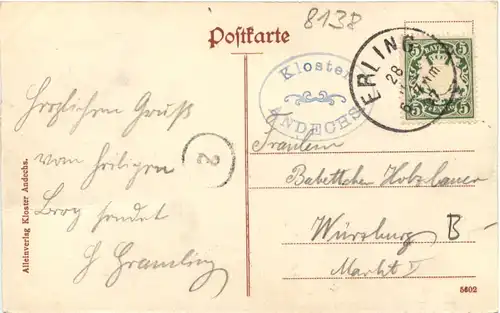 8138
Postkarte
Kloster
ANDECHS
ERLING
28
BAYERN
5 5
5 5
2
Herzlichen Gruß
vom heiligen
Berg sendet
G Gramling
Fräulein
Babettchen Holzbauer
Würzburg B
Markt
Alleinverlag Kloster Andechs.
5602